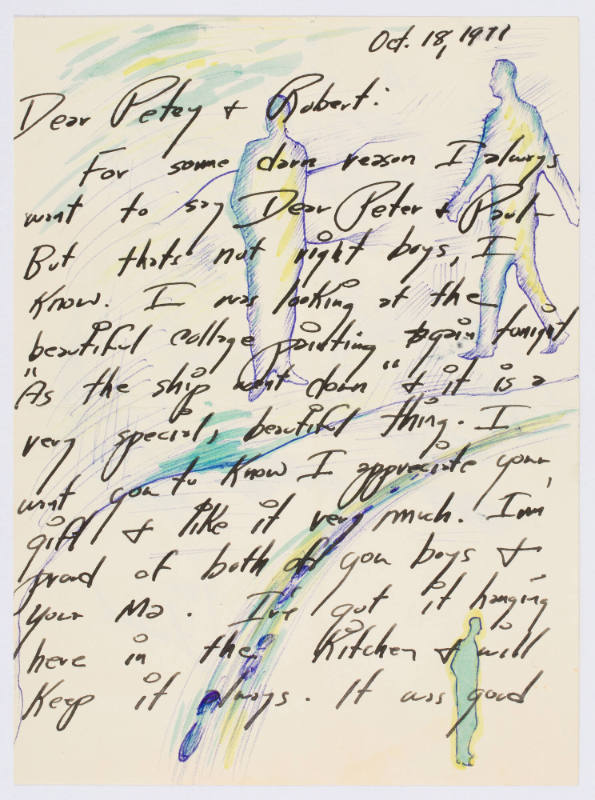 Oct. 18, 1971
Dear Petey & Robert:
For some darn reason I always
want to say Dear Peter & Paul-
But thats not right boys, I
Know. I was looking at the
beautiful collage painting again tonight
"As the ship went down" & it is a
very special, beautiful thing. I
want you to Know I appreciate your
gift & like it very much. I'm
proud of both of you boys &
your Ma. I've got it hanging
here in the Kitchen & will
Keep it always. It was good